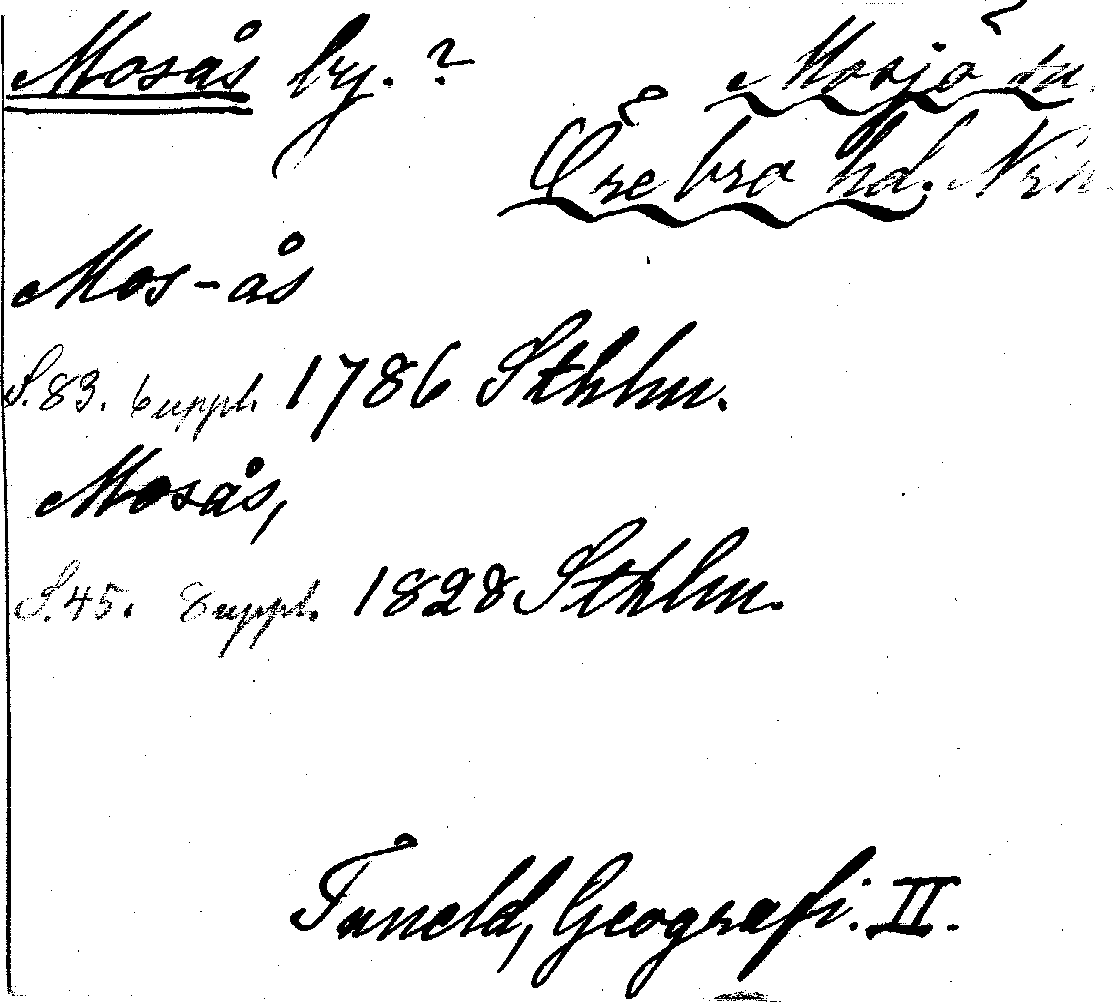 Mosås by. ? Mosjö sn.
Örebro hd. Nrk.
Mos-ås
S. 83. 6 uppl. 1786 Sthlm.
Mosås,
S. 45. 8 uppl. 1828 Sthlm.
Tuneld, Geografi. II.